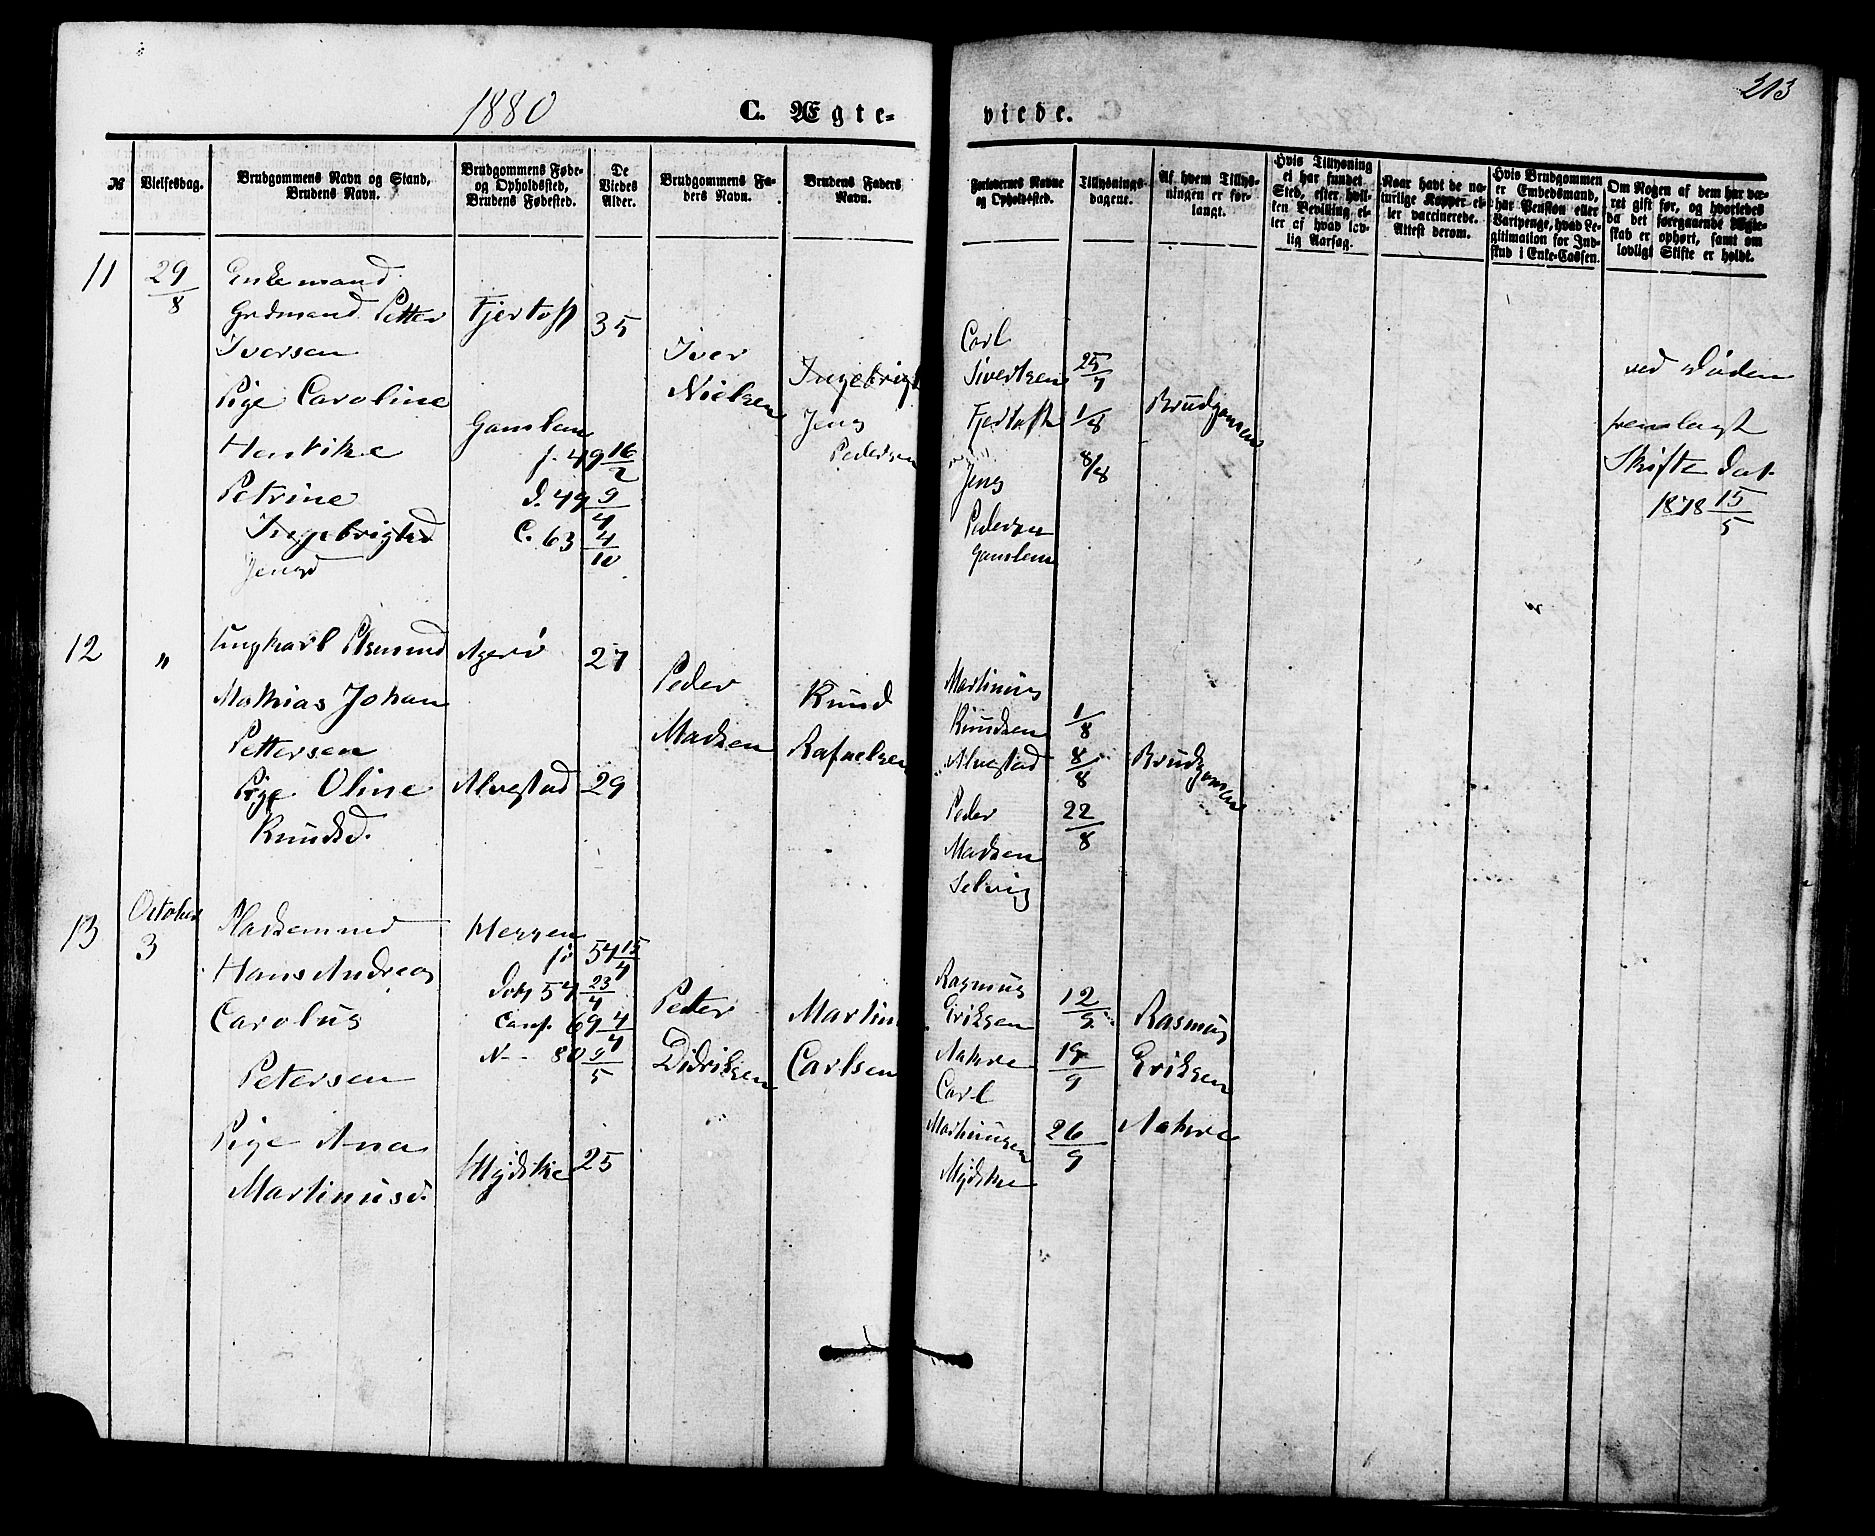 1880
C. Ægte-
viede.
213
№
Vielsesdag.
Brudgommens Navn og Stand,
Brudens Navn.
Brudgommens Føde-
og Opholdssted,
Brudens Fødested.
De
Viedes
Alder.
Brudgommens Fa-
ders Navn.
Brudens Faders
Navn.
Forlovernes Navne
og Opholdssted.
Tillysnings-
dagene.
Af hvem Tillys-
ningen er for-
langt.
Hvis Tillysning
ei har fundet
Sted, efter hvil-
ken Bevilling el-
ler af hvad lov-
lig Aarsag.
Naar havt de na-
turlige Kopper el-
ler vaccinerede.
Attest derom.
Hvis Brudgommen
er Embedsmand,
har Pension eller
Vartpenge, hvad Le-
gitimation for Ind-
skud i Enke-Cassen.
Om Nogen af dem har væ-
ret gift før, og hvorledes
da det foregaaende Ægte-
skab er ophørt, samt om
lovligt Skifte er holdt.
11
29/8
Enkemand
Grdmand Petter
Iversen
Pige Caroline
Henrike
Petrine
Ingebrigtsd
Jensd
Fjertoft
Gamlem
f. 49 16/2
d. 49 9/4
C. 63 4/10
35
Iver
Nielsen
Ingebrigt
Jens
Pedersen
Carl
Sivertsen
Fjertoft
Jens
Pedersen
Gamlem
25/7
1/8
8/8
Brudgomen
ved Døden
fremlagt
Skifte dat.
1878 15/5
12
"
Ungkarl
Mathias Johan
Pettersen
Pige Oline
Knudsd.
Agerø
Alvestad
27
29
Peder
Madsen
Knud
Rafaelsen
Martinus
Knudsen
Alvestad
Peder
Madsen
Selvig
1/8
8/8
22/8
Brudgomen
13
October
3
Hans Andreas
Carolus
Petersen
Pige Ana
Martinusd.
54 15/4
Døbt 54 23/4
Conf. 69 4/4
N-- 80 9/5
Mydske
25
Peter
Didriksen
Martin
Carlsen
Rasmus
Eriksen
Aakre
Carl
Martinusen
Mydske
12/9
19/9
26/9
Rasmus
Eriksen
Aakre